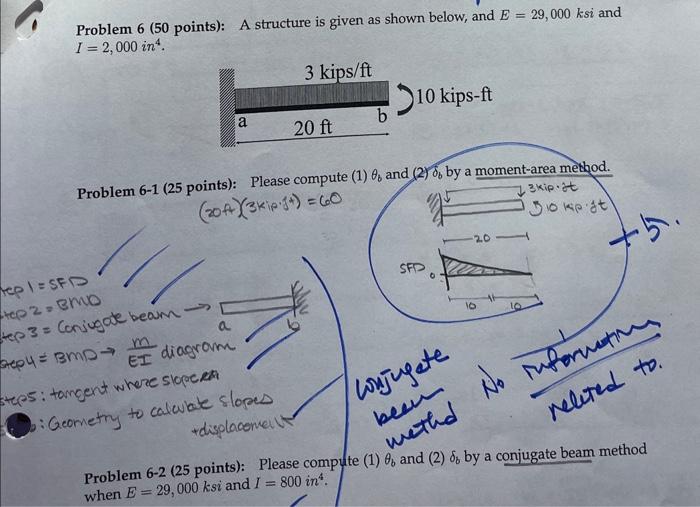 Problem 6 (50 points): A structure is given as shown below, and E = 29,000 ksi and
I = 2,000 in⁴.
3 kips/ft
10 kips-ft
a
b
20 ft
Problem 6-1 (25 points): Please compute (1) θb and (2) δb by a moment-area method.
(20ft)(3kip·ft) = 60
3kip·ft
10 kip·ft
20
+5.
SFD
0
10
10
tep 1 = SFD
tep 2 = BMD
tep 3 = Conjugate beam →
a
b
step 4 = BMD → m/EI diagram
steps: tangent where slope
: Geometry to calculate slopes
+displacement
conjugate
beam
method
No information
related to.
Problem 6-2 (25 points): Please compute (1) θb and (2) δb by a conjugate beam method
when E = 29,000 ksi and I = 800 in⁴.